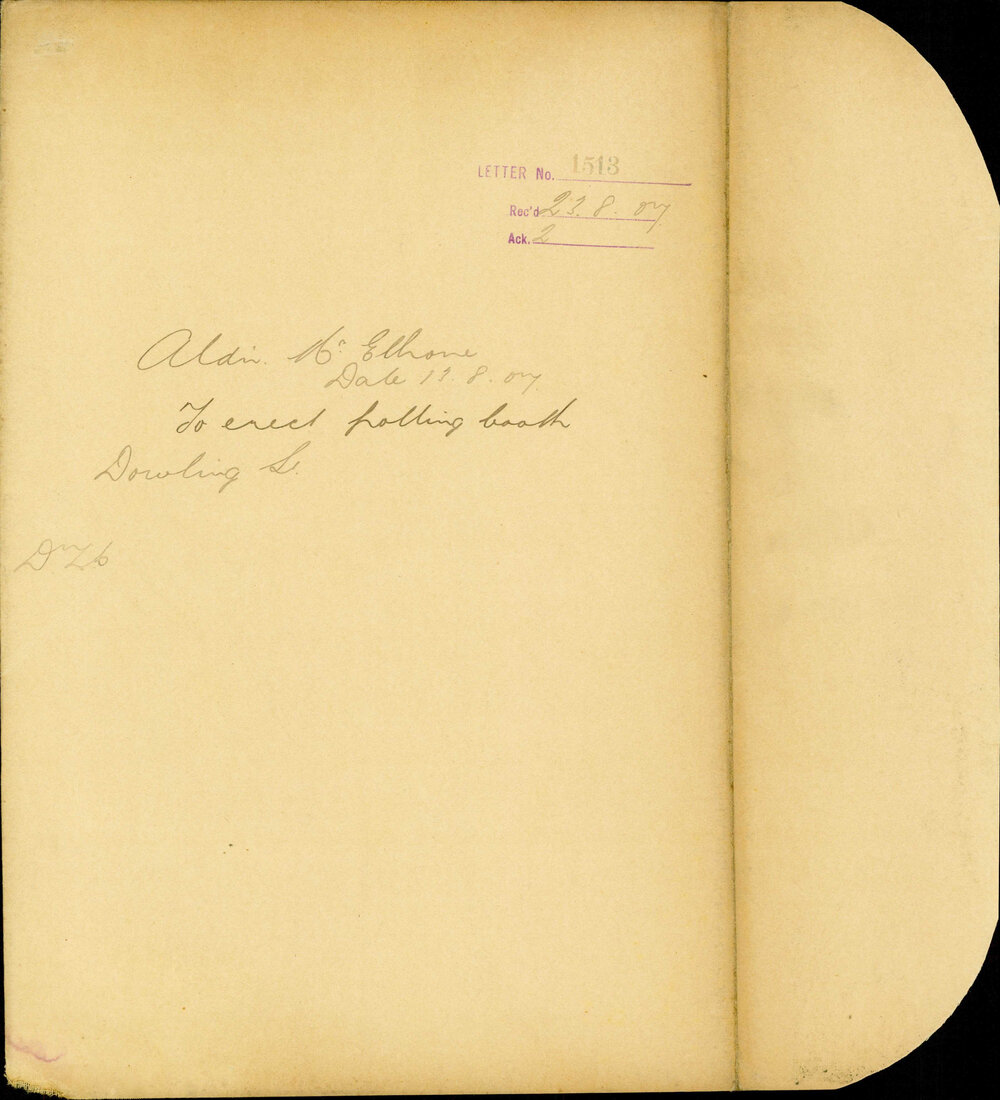 LETTER No. 1513
Rec'd 23. 8. 07
Ack. 2
Aldn. Mc Elhone
Date 19. 8. 07
To erect polling booth
Dowling St.